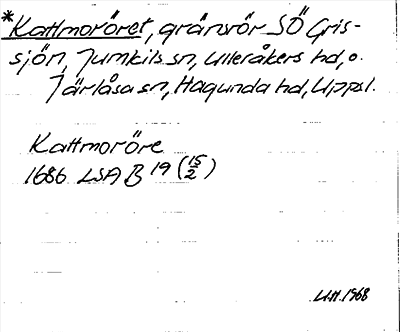 *Kattmoröret, gränsrör SÖ Gris-
sjön, Jumkils sn, Ulleråkers hd, o.
Järlåsa sn, Hagunda hd, Uppsl.
Kattmoröre
1686 LSA B 19 (15/2)
LH. 1968